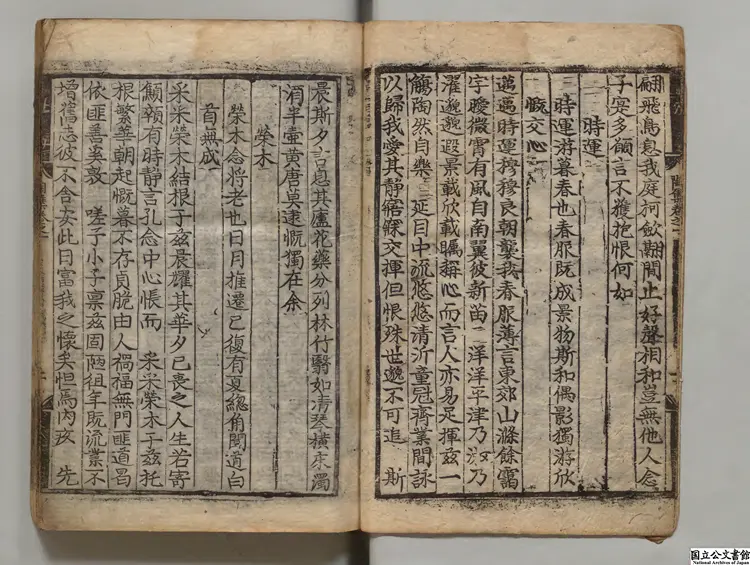 翩飛鳥息我庭柯歛翮閒止好聲相和豈無他人念
子寔多願言不獲抱恨何如
時運
時運游暮春也春服既成景物斯和偶影獨游欣
慨交心
邁邁時運穆穆良朝襲我春服薄言東郊山滌餘靄
宇曖微霄有風自南翼彼新苗 洋洋平津乃漱乃
濯邈邈遐景載欣載矚稱心而言人亦易足揮茲一
觴陶然自樂 延目中流悠悠清沂童冠齊業間詠
以歸我愛其靜寤寐交揮但恨珠世邈不可追 斯
晨斯夕言息其廬花藥分列林竹翳如清琴橫床濁
酒半壺黃唐莫逮慨獨在余
榮木
榮木念將老也日月推遷已復有夏總角聞道白
首無成
采采榮木結根于茲晨耀其華夕已喪之人生若寄
顦顇有時靜言孔念中心悵而 采采榮木于茲托
根繁華朝起慨暮不存貞脆由人禍福無門匪道曷
依匪善奚敦 嗟予小子稟茲固陋徂年既流業不
增舊志彼不舍安此日富我之懷矣怛焉內疚 先
国立公文書館
National Archives of Japan